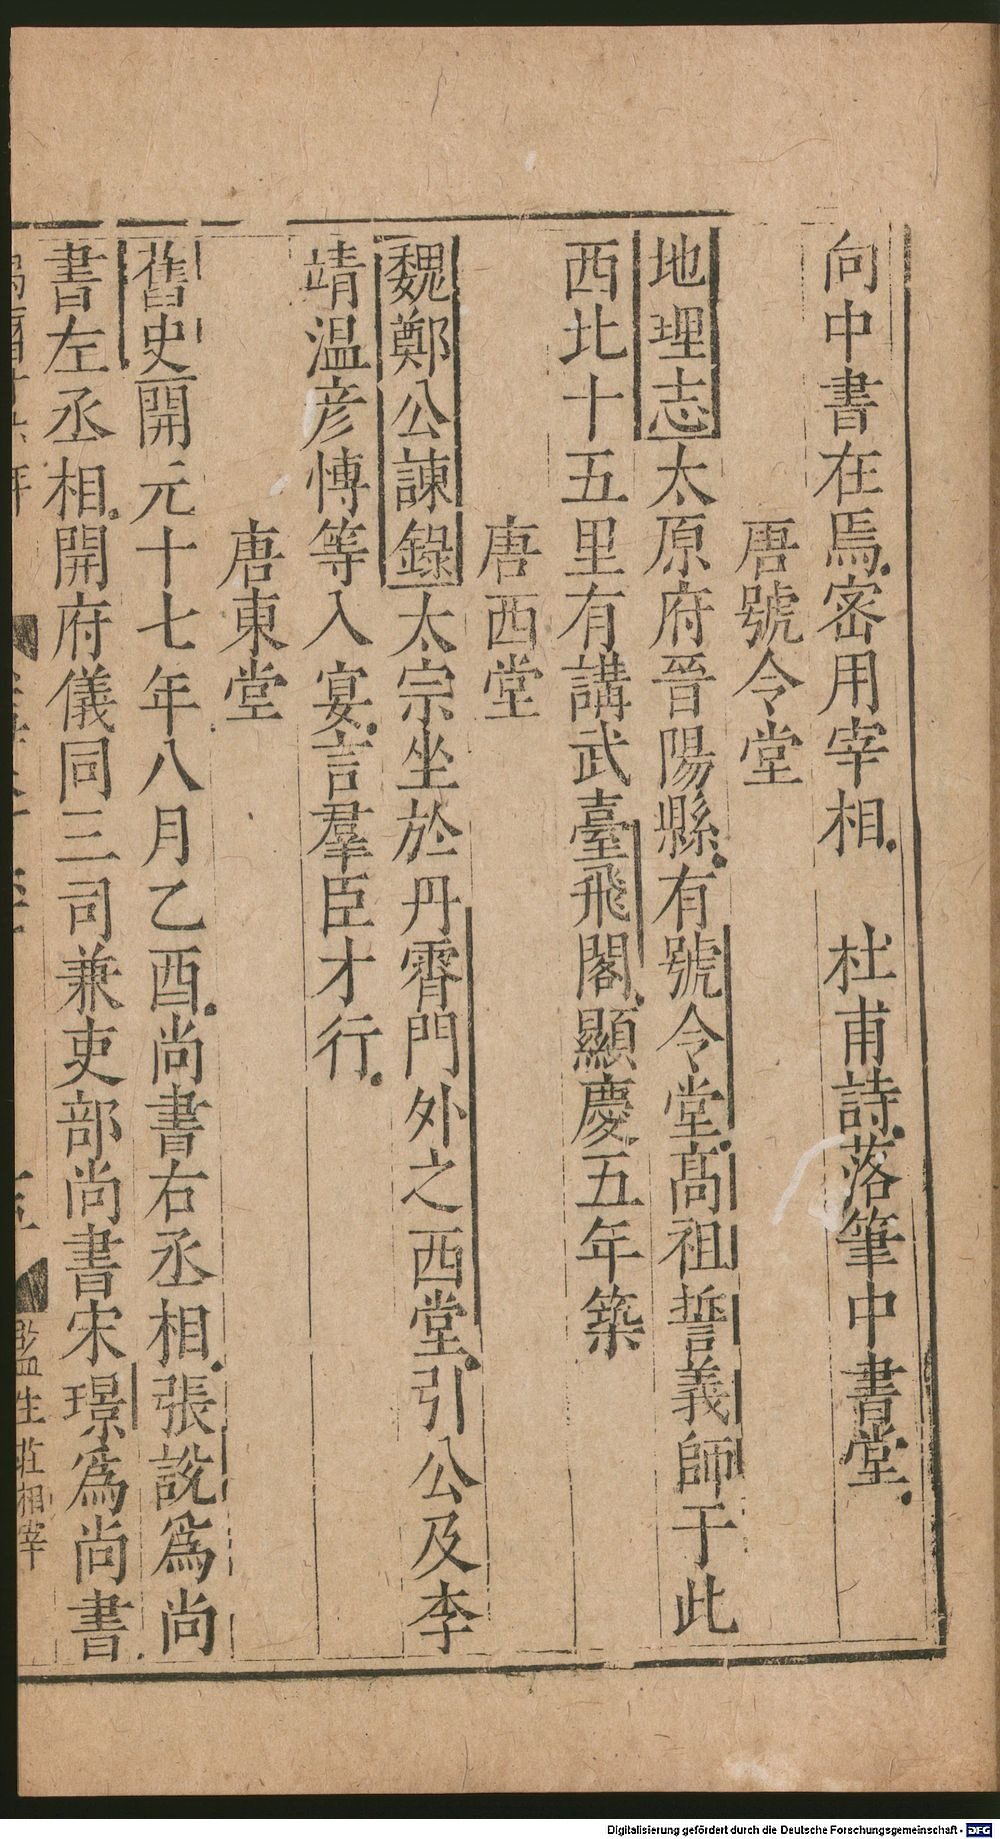 向中書在焉密用宰相　杜甫詩落筆中書堂
唐號令堂
地理志太原府晉陽縣有號令堂高祖誓義師于此
西北十五里有講武臺飛閣顯慶五年築
唐西堂
魏鄭公諫錄太宗坐於丹霄門外之西堂引公及李
靖温彦愽等入宴言羣臣才行
唐東堂
舊史開元十七年八月乙酉尚書右丞相張說爲尚
書左丞相開府儀同三司兼吏部尚書宋璟爲尚書
監生莊相宰
Digitalisierung gefördert durch die Deutsche Forschungsgemeinschaft - DFG